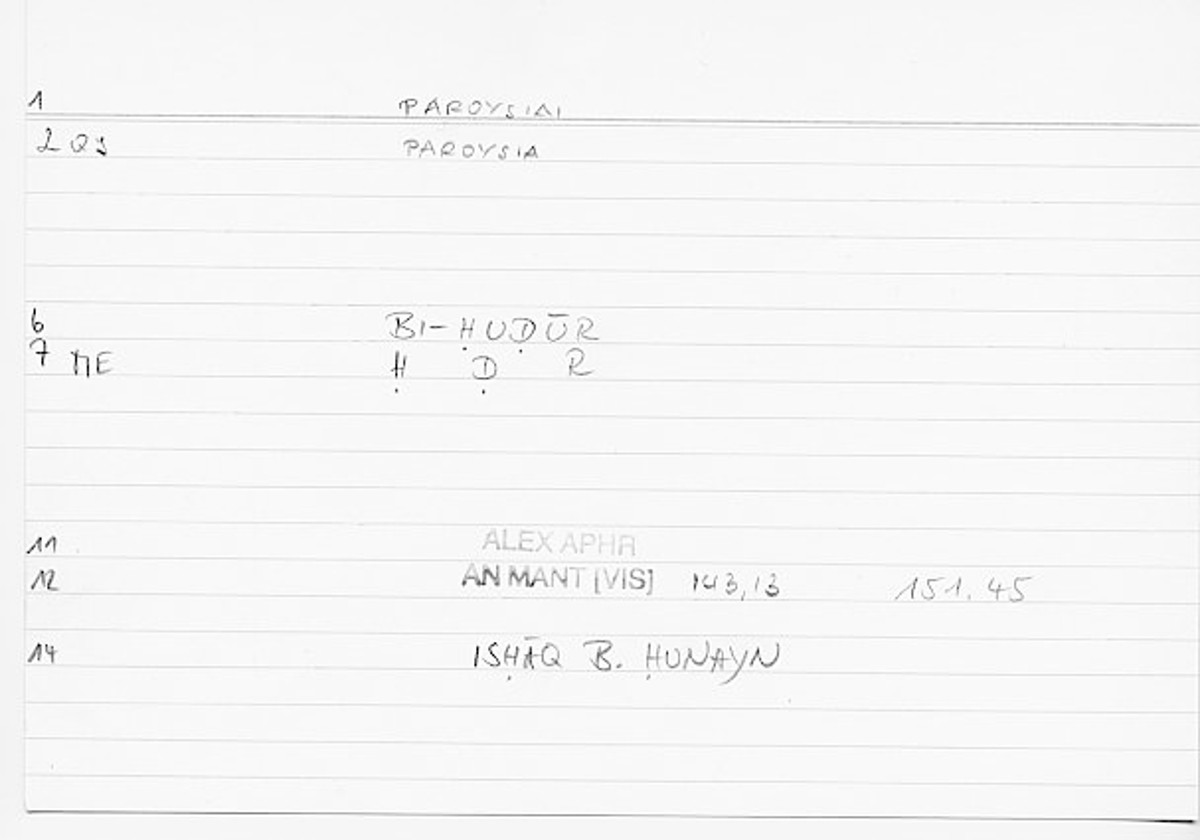 1 PAROYSIAI
2 QS PAROYSIA
6 BI-ḤUḌŪR
7 ME Ḥ Ḍ R
11 ALEX APHR
12 AN MANT [VIS] 143,13 151.45
14 ISḤĀQ B. ḤUNAYN